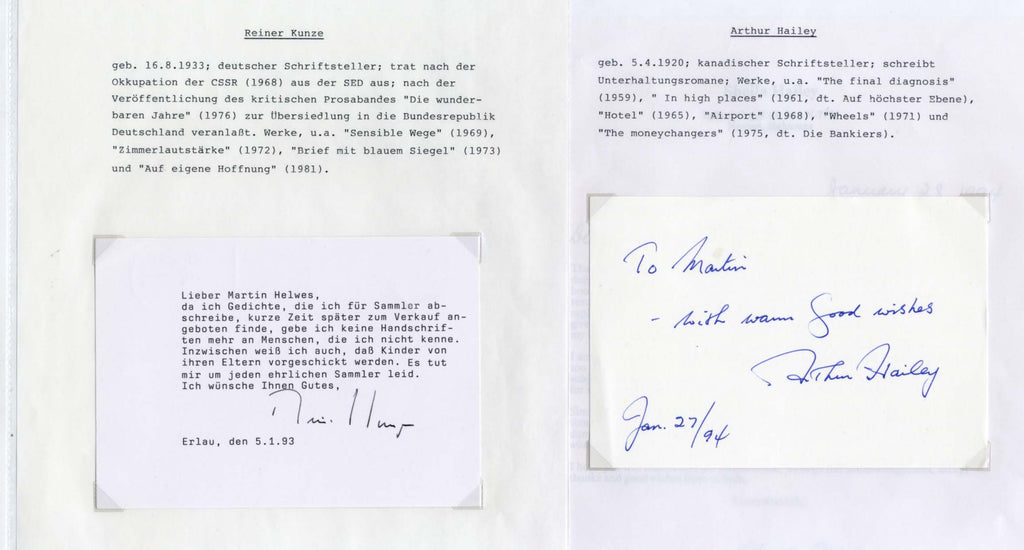 Reiner Kunze
geb. 16.8.1933; deutscher Schriftsteller; trat nach der
Okkupation der CSSR (1968) aus der SED aus; nach der
Veröffentlichung des kritischen Prosabandes "Die wunder-
baren Jahre" (1976) zur Übersiedlung in die Bundesrepublik
Deutschland veranlaßt. Werke, u.a. "Sensible Wege" (1969),
"Zimmerlautstärke" (1972), "Brief mit blauem Siegel" (1973)
und "Auf eigene Hoffnung" (1981).
Lieber Martin Helwes,
da ich Gedichte, die ich für Sammler ab-
schreibe, kurze Zeit später zum Verkauf an-
geboten finde, gebe ich keine Handschrif-
ten mehr an Menschen, die ich nicht kenne.
Inzwischen weiß ich auch, daß Kinder von
ihren Eltern vorgeschickt werden. Es tut
mir um jeden ehrlichen Sammler leid.
Ich wünsche Ihnen Gutes,
Erlau, den 5.1.93
Arthur Hailey
geb. 5.4.1920; kanadischer Schriftsteller; schreibt
Unterhaltungsromane; Werke, u.a. "The final diagnosis"
(1959), " In high places" (1961, dt. Auf höchster Ebene),
"Hotel" (1965), "Airport" (1968), "Wheels" (1971) und
"The moneychangers" (1975, dt. Die Bankiers).
January 28 1994
To Martin
- with warm good wishes
Arthur Hailey
Jan. 27/94